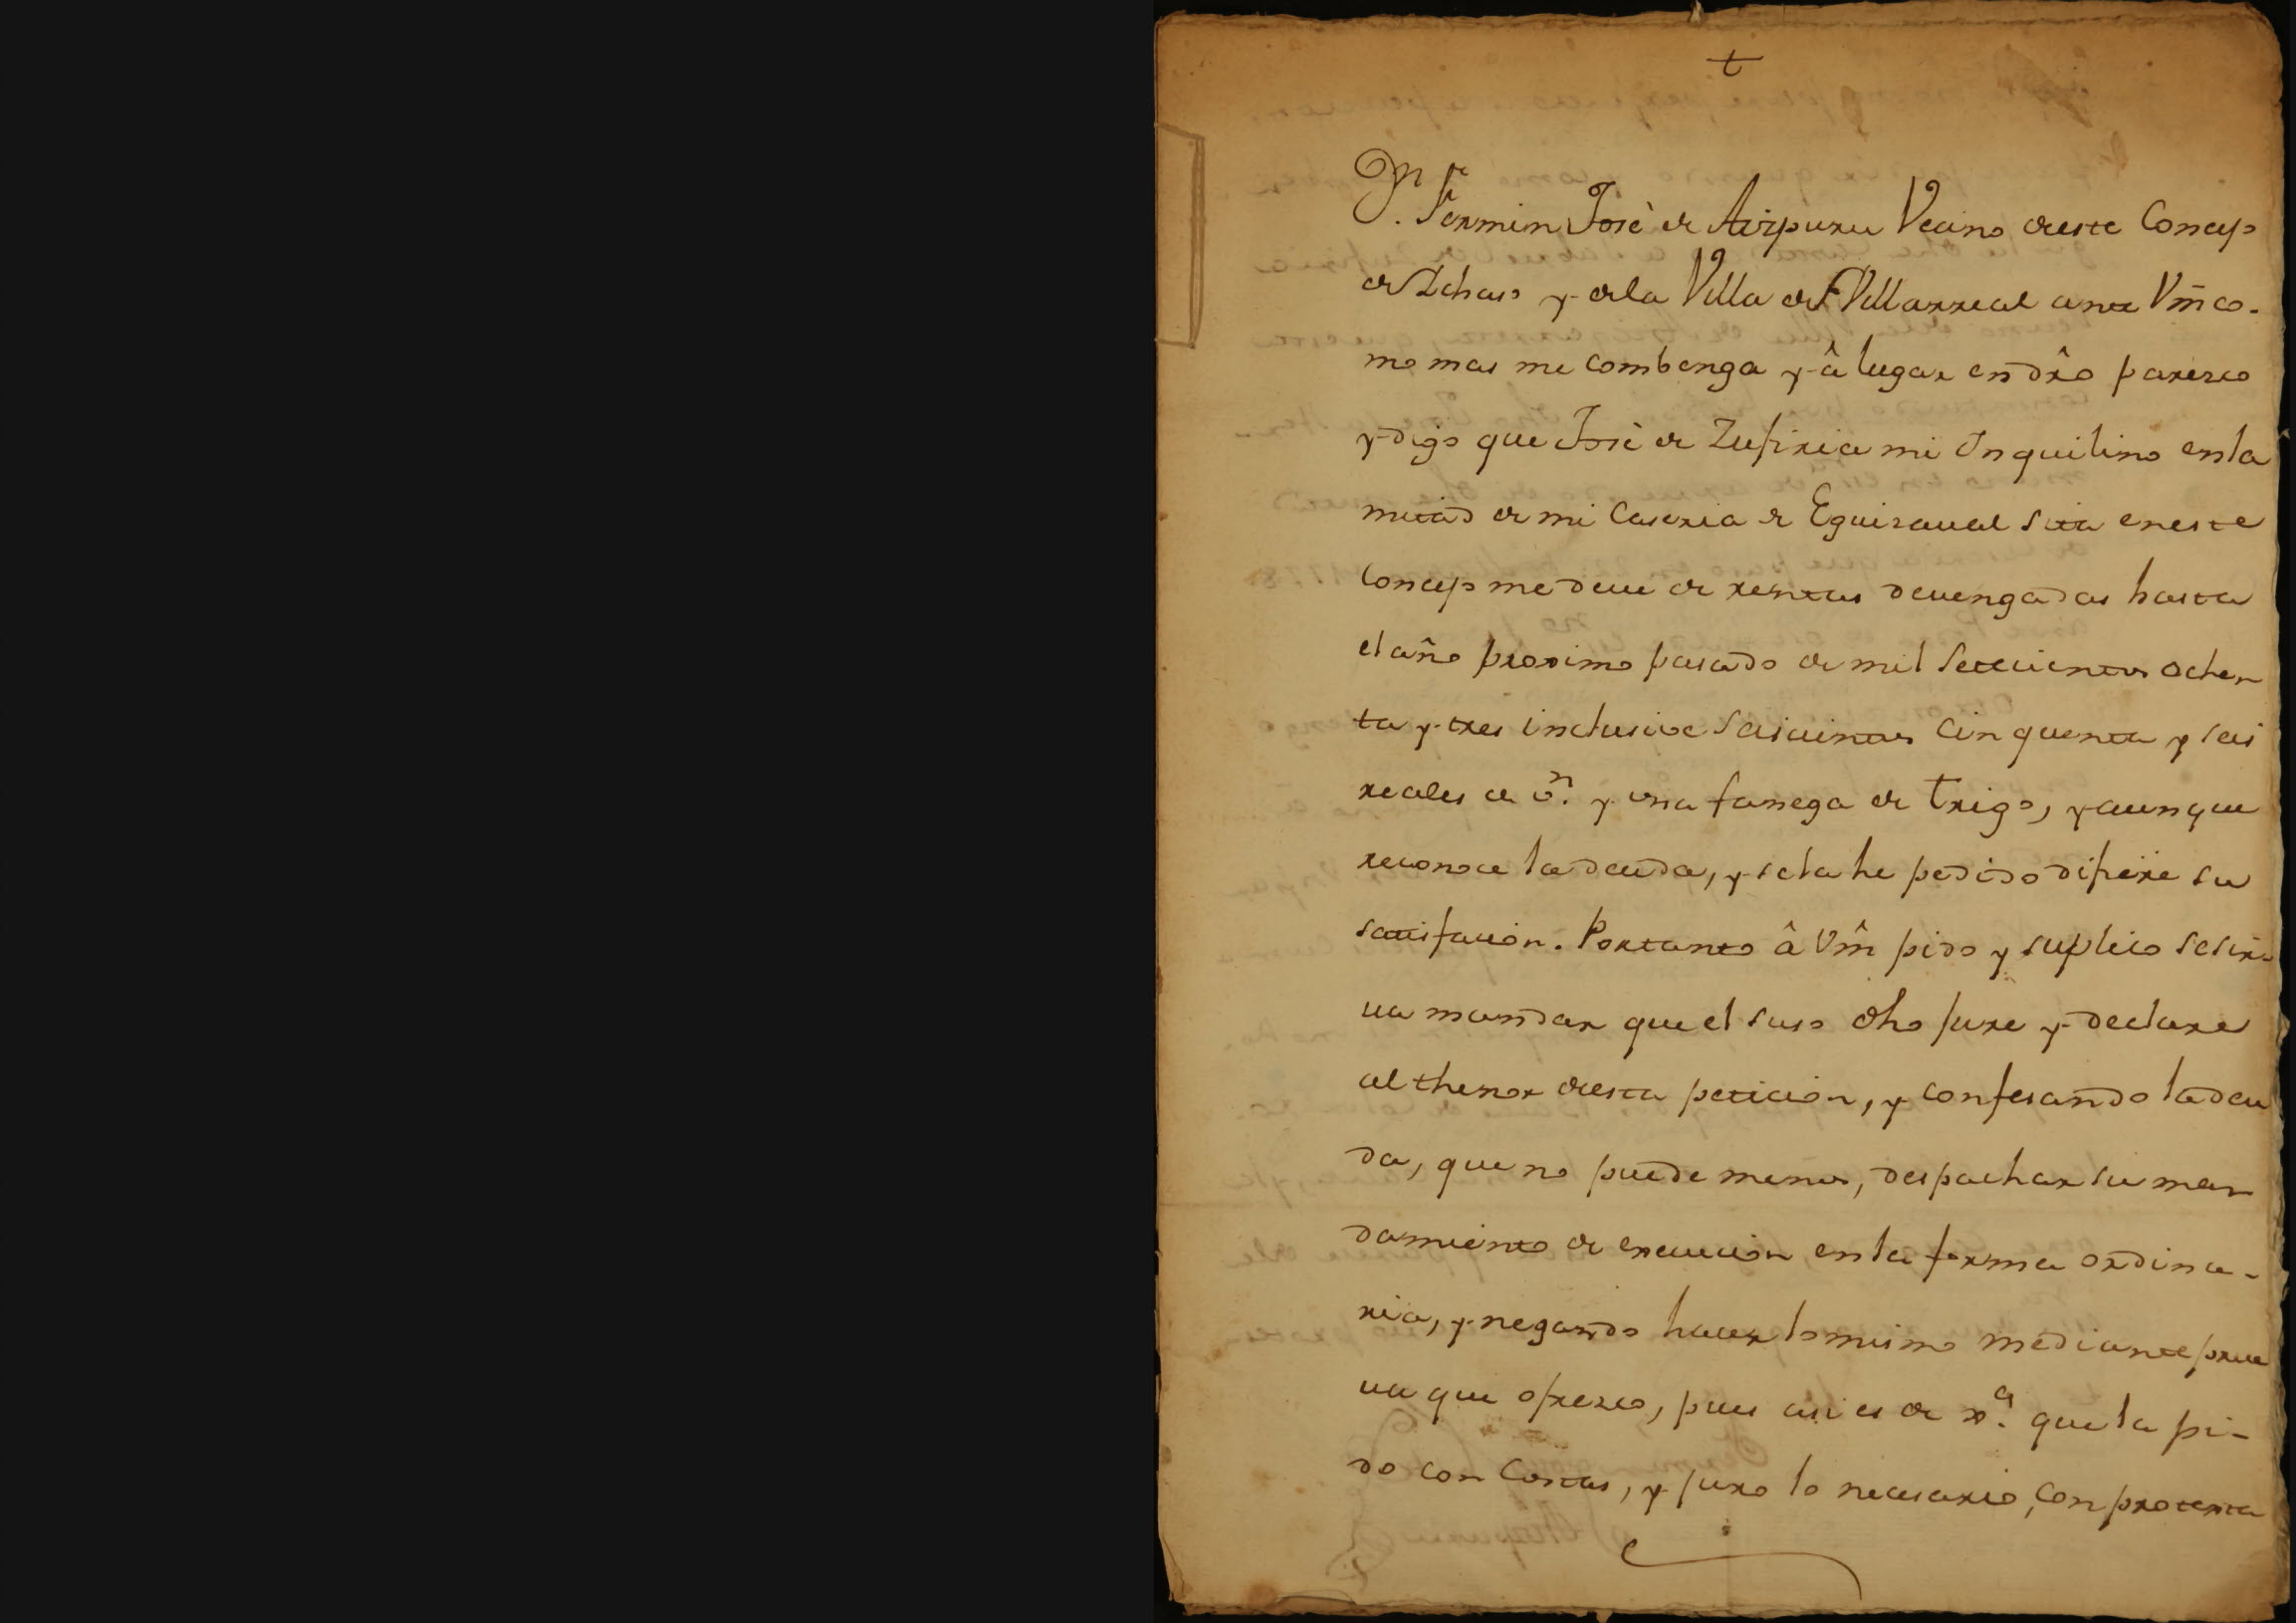 t
Dn. Fermin José de Aizpuru Vecino deeste Concejo
de Ichaso y dela Villa de Villarreal ante Vm̃ co-
mo mas me combenga y â lugar en dr̂o paresco
y digo que José de Zufiria mi Ynquilino enla
mitad de mi Caseria de Eguizaual sita eneste
Concejo me deue de rentas deuengadas hasta
el año proximo pasado de mil Setecientos ochen
ta y tres inclusive Seiscientos cinquenta y seis
reales de vn. y una fanega de trigo, y aunque
reconoce la deuda, y sela he pedido difiere su
satisfacion. Portanto â Vm̂ pido y suplico sesir-
ua mandar que el suso dho jure y declare
al thenor desta peticion, y confesando la deu
da, que no puede menos, despachar su man
damiento de execucion enla forma ordina-
ria, y negando hacer lo mismo mediante prue
ua que ofrezco, pues asi es de xa. que la pi-
do con Costas, y juro lo necesario, con protexta